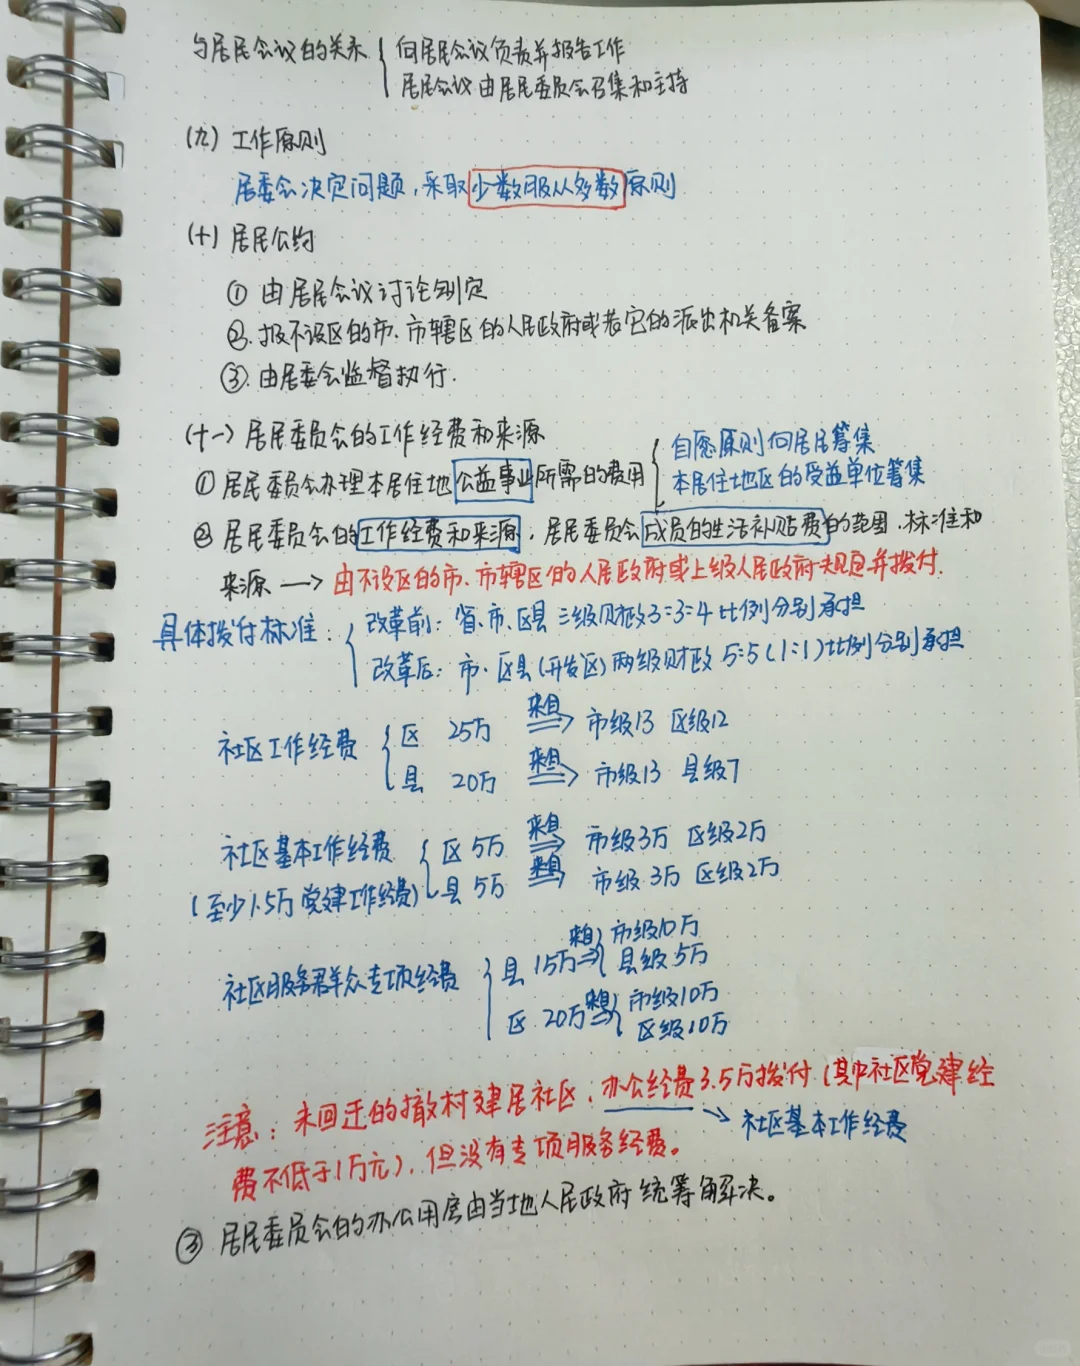 与居民会议的关系 { 向居民会议负责并报告工作
居民会议由居民委员会召集和主持
(九) 工作原则
居委会决定问题,采取少数服从多数原则
(十) 居民公约
① 由居民会议讨论制定
②. 报不设区的市、市辖区的人民政府或者它的派出机关备案
③. 由居委会监督执行.
(十一) 居民委员会的工作经费和来源
① 居民委员会办理本居住地公益事业所需的费用 { 自愿原则向居民筹集
本居住地区的受益单位筹集
② 居民委员会的工作经费和来源,居民委员会成员的生活补贴费的范围、标准和
来源 —> 由不设区的市、市辖区的人民政府或上级人民政府规定并拨付.
具体拨付标准: { 改革前: 省、市、区县 三级财政3:3:4比例分别承担
改革后: 市、区县(开发区)两级财政 5:5(1:1)比例分别承担
社区工作经费 { 区 25万 来自=> 市级13 区级12
县 20万 来自=> 市级13 县级7
社区基本工作经费 { 区 5万 来自=> 市级3万 区级2万
(至少1.5万党建工作经费) 县 5万 来自=> 市级3万 区级2万
社区服务群众专项经费 { 县 15万 来自=> { 市级10万
县级5万
区 20万 来自=> { 市级10万
区级10万
注意: 未回迁的撤村建居社区,办公经费3.5万拨付(其中社区党建经
→ 社区基本工作经费
费不低于1万元),但没有专项服务经费。
③ 居民委员会的办公用房由当地人民政府统筹解决。